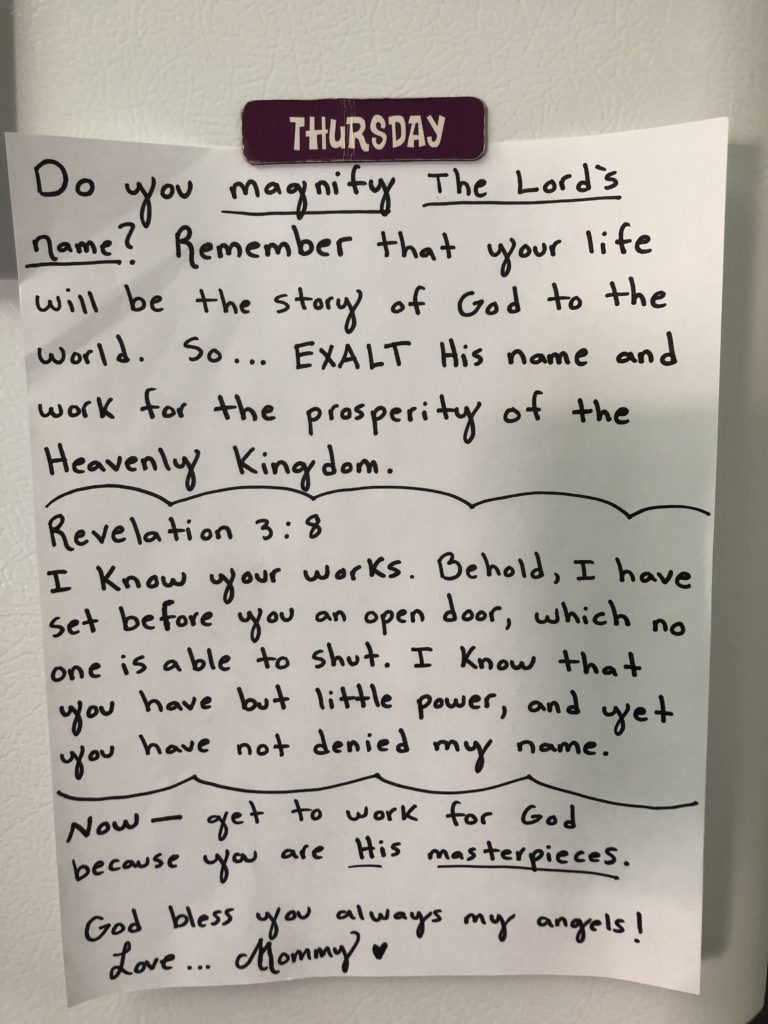 THURSDAY
Do you magnify The Lord's
name? Remember that your life
will be the story of God to the
world. So... EXALT His name and
work for the prosperity of the
Heavenly Kingdom.
Revelation 3:8
I Know your works. Behold, I have
set before you an open door, which no
one is able to shut. I Know that
you have but little power, and yet
you have not denied my name.
Now — get to work for God
because you are His masterpieces.
God bless you always my angels!
Love... Mommy ♥